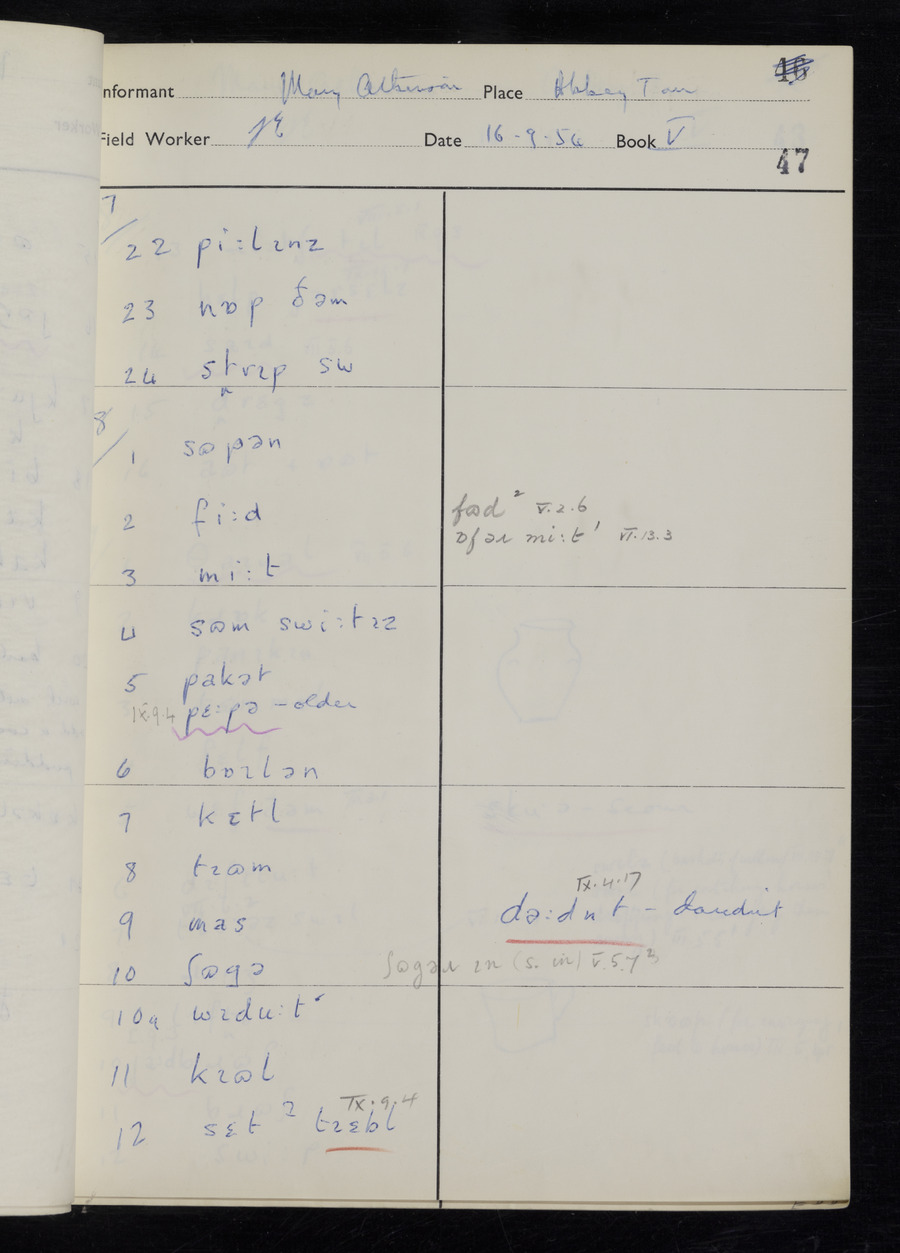 46
Informant Mary Atkinson Place Abbey Town
Field Worker JE Date 16-9-54 Book V
47
7/
22 piːlɪnz
23 nɒp ðəm
24 strɪp sw
8/
1 sɷpən
2 fiːd fɷd² V.2.6
ɒfəɹ miːt¹ VI.13.3
3 miːt
4 sɷm swiːtɪz
5 pakət
IX.9.4 pɛːpə - older
6 bɒɪlən
7 kɛtl
8 tɹɷm
IX.4.17
9 mas dəːdnt - daredn't
10 ʃɷgə ʃɷgəɹ ɪn (s. in) V.5.7²
10a wɪduːt
11 kɹɷl
IX.9.4
12 sɛt ² tɹɛbl